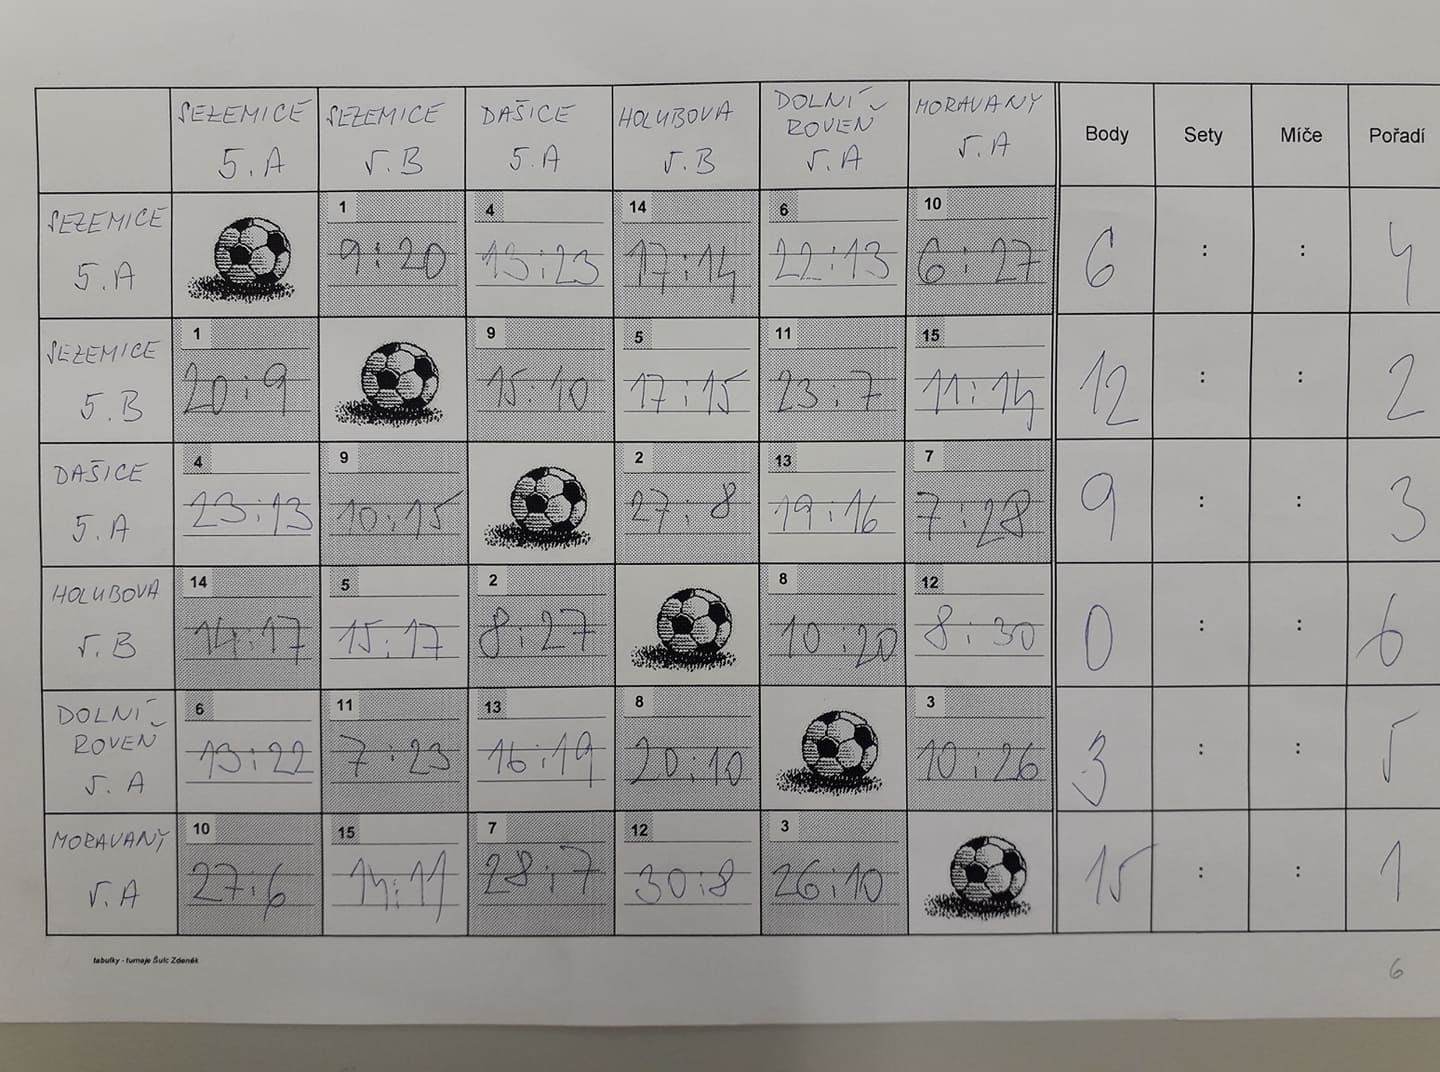 SEZEMICE 5.A SEZEMICE 5.B DAŠICE 5.A HOLUBOVA 5.B DOLNÍ ROVEŇ 5.A MORAVANY 5.A Body Sety Míče Pořadí
SEZEMICE 5.A 1 9:20 4 13:23 14 17:14 6 22:13 10 6:27 6 : : 4
SEZEMICE 5.B 1 20:9 9 15:10 5 17:15 11 23:7 15 11:14 12 : : 2
DAŠICE 5.A 4 23:13 9 10:15 2 27:8 13 19:16 7 7:28 9 : : 3
HOLUBOVA 5.B 14 14:17 5 15:17 2 8:27 8 10:20 12 8:30 0 : : 6
DOLNÍ ROVEŇ 5.A 6 13:22 11 7:23 13 16:19 8 20:10 3 10:26 3 : : 5
MORAVANY 5.A 10 27:6 15 14:11 7 28:7 12 30:8 3 26:10 15 : : 1
tabulky - turnaje Šulc Zdeněk
6